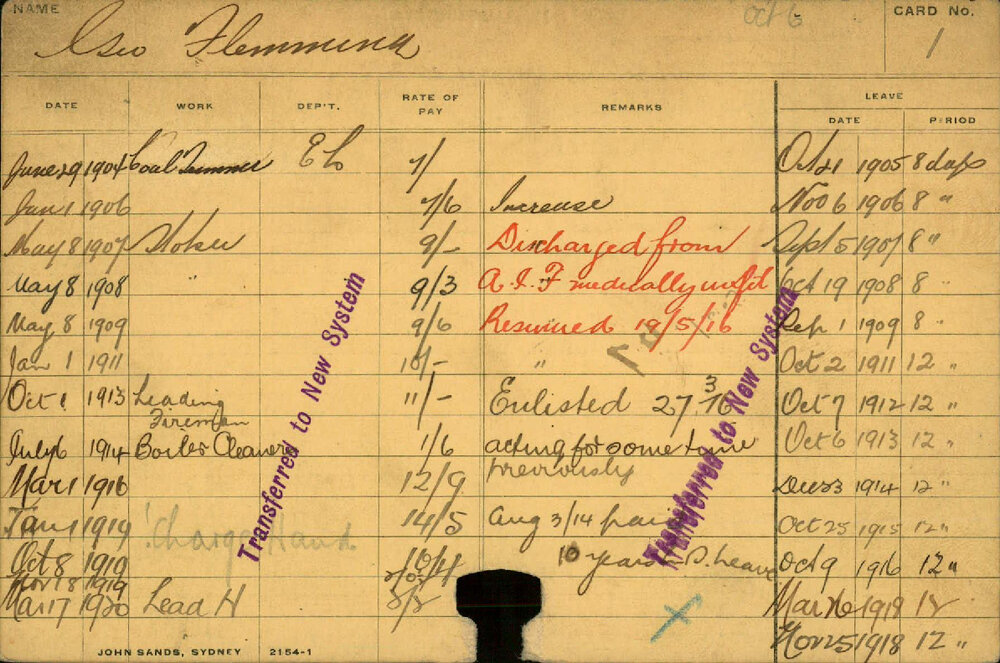 NAME
Geo Flemming
Oct 6
CARD No.
1
DATE WORK DEP'T. RATE OF PAY REMARKS LEAVE
DATE PERIOD
June 29 1904 Coal Trimmer E L 7/ Oct 21 1905 8 days
Jan 1 1906 7/6 Increase Nov 6 1906 8 "
May 8 1907 Stoker 9/- Discharged from Sept 5 1907 8 "
May 8 1908 " 9/3 A.I.F medically unfit Oct 19 1908 8 "
May 8 1909 9/6 Resumed 19/5/16 Sep 1 1909 8 "
Jan 1 1911 10/- " Oct 2 1911 12 "
Oct 1 1913 Leading 11/- Enlisted 27.3.16 Oct 7 1912 12 "
Fireman
July 6 1914 Boiler Cleaner 1/6 acting for some time Oct 6 1913 12 "
previously
Mar 1 1916 12/9 Dec 23 1914 12 "
Jan 1 1919 Charge Hand 14/5 Aug 3/14 Oct 25 1915 12 "
Oct 8 1919 10 years Leave Oct 9 1916 12 "
Nov 18 1919
Mar 17 1920 Lead H Mar 26 1918 12
Nov 25 1918 12 "
Transferred to New System
Transferred to New System
JOHN SANDS, SYDNEY 2154-1